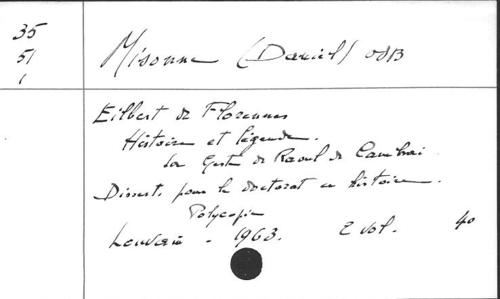 35
51
1
Misonne (Daniel) OSB
Eilbert de Florennes
Histoire et légende.
La Geste de Raoul de Cambrai
Dissert. pour le doctorat en histoire.
Polycopié
Louvain - 1963. 2 vol. 40